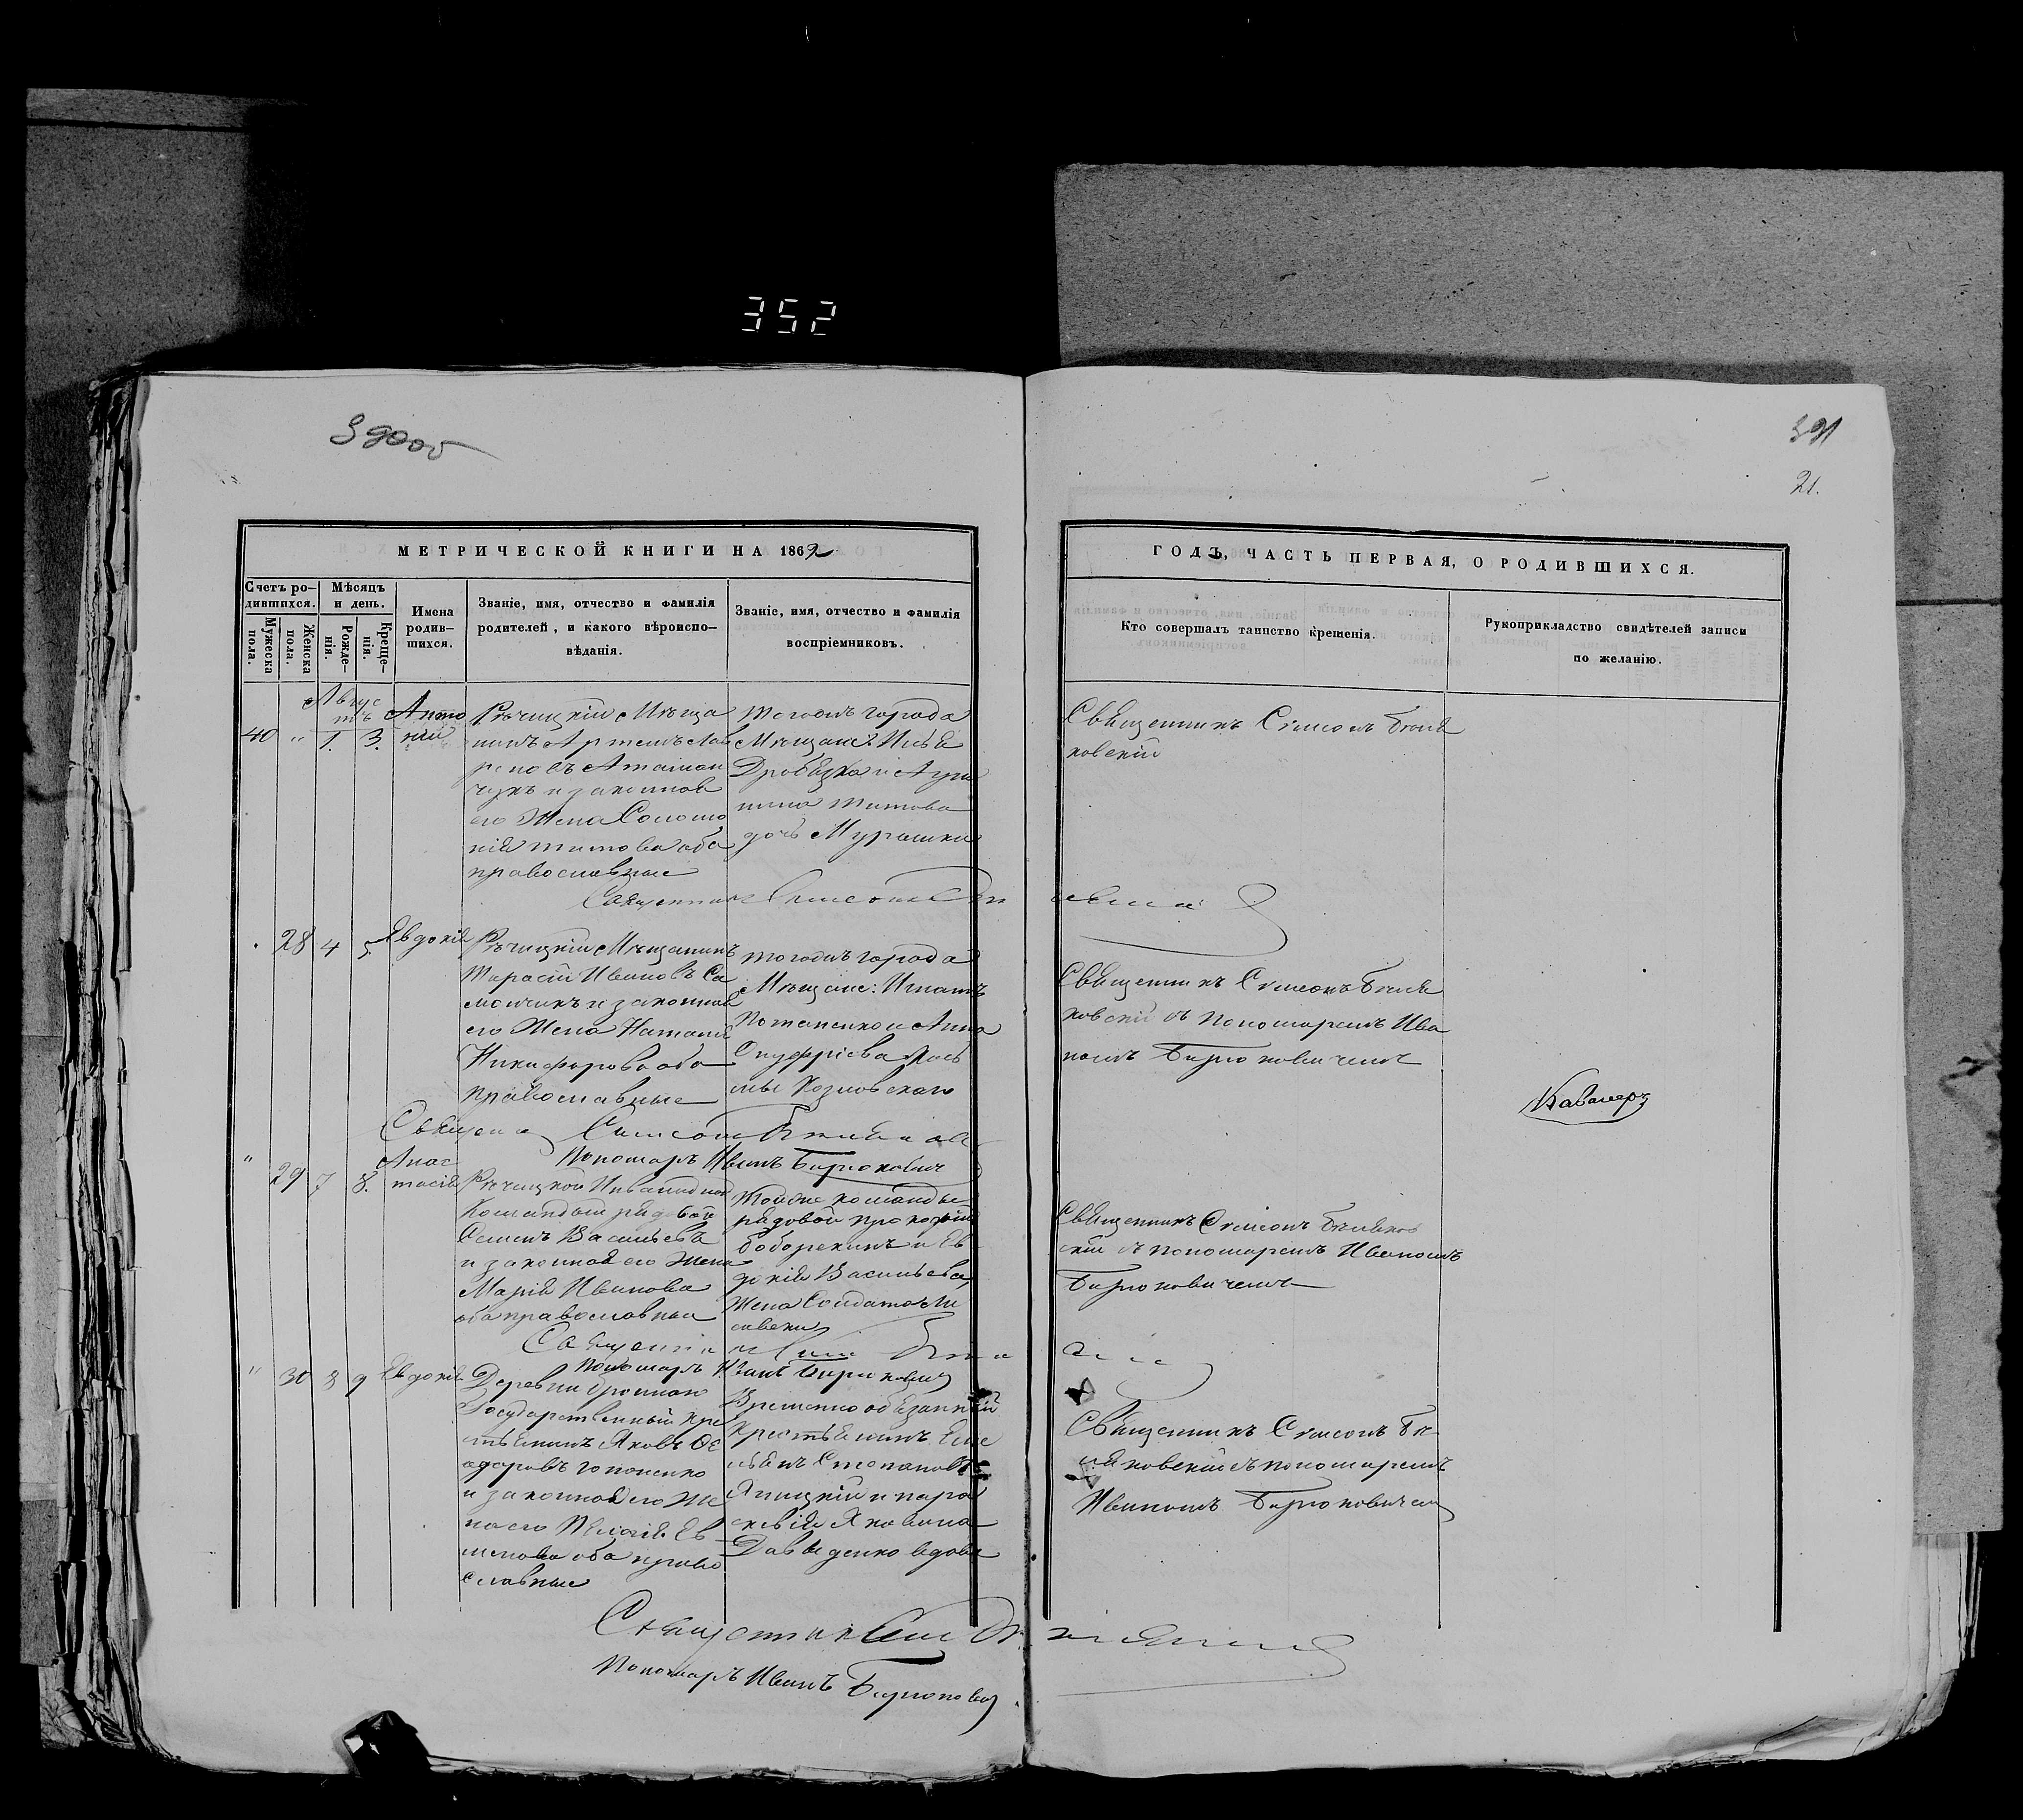 352
390об
391
21.
МЕТРИЧЕСКОЙ КНИГИ НА 1862
ГОДЪ, ЧАСТЬ ПЕРВАЯ, О РОДИВШИХСЯ.
Счетъ ро-
дившихся.
Мужеска
пола.
Женска
пола.
Мѣсяцъ
и день.
Рожде-
нія.
Креще-
нія.
Имена
родив-
шихся.
Званіе, имя, отчество и фамилія
родителей, и какого вѣроиспо-
вѣданія.
Званіе, имя, отчество и фамилія
воспріемниковъ.
Кто совершалъ таинство крещенія.
Рукоприкладство свидѣтелей записи
по желанію.
Авгус
тъ
40 " 1. 3.
Анто
ній
Рѣчицкій Мѣща
нинъ Артемъ Лав
реновъ Атаман
чукъ и законная
его Жена Соломо
нія Титова оба
православные
того жъ города
Мѣщане: Илья
Дробязко и Агри
пина Титова
дочь Мурашки
Священникъ Симеонъ Бѣля
новскій
Священникъ Симеонъ
28 4 5.
Евдокія
Рѣчицкій Мѣщанинъ
Тарасій Ивановъ Са
мойликъ и законная
его Жена Наталія
Никифорова оба
православные
того жъ города
Мѣщане: Игнатъ
Потапенко и Анна
Онуфріева
Козловскаго
Священникъ Симеонъ Бѣля
новскій съ пономаремъ Ива
номъ Бирюковичемъ
Кавалеръ
Священникъ Симеонъ
Пономарь Иванъ Бирюковичъ
" 29 7 8.
Анас
тасія
Рѣчицкой Инвалидной
Команды рядовой
Семенъ Васильевъ
и законная его Жена
Марія Иванова
оба православные
Той же команды
рядовой Прокопій
Боборекинъ и Ев
докія Васильева
Жена Солдата
Священникъ Симеонъ Бѣлянов
скій съ пономаремъ Иваномъ
Бирюковичемъ
Священникъ
Пономарь Иванъ Бирюковичъ
" 30 8 9
Евдокія
Деревни
Государственный Кре
стьянинъ Яковъ Ѳе
одоровъ Гопоненко
и законная его Же
на его Пелагія Ев
менова оба право
славные
Временно обязанный
Крестьянинъ Еме
льянъ Степановъ
и Пара
скевія Яковлева
Давыденко вдова
Священникъ Симеонъ Бѣ
ляновскій съ пономаремъ
Иваномъ Бирюковичемъ
Священникъ
Пономарь Иванъ Бирюковичъ